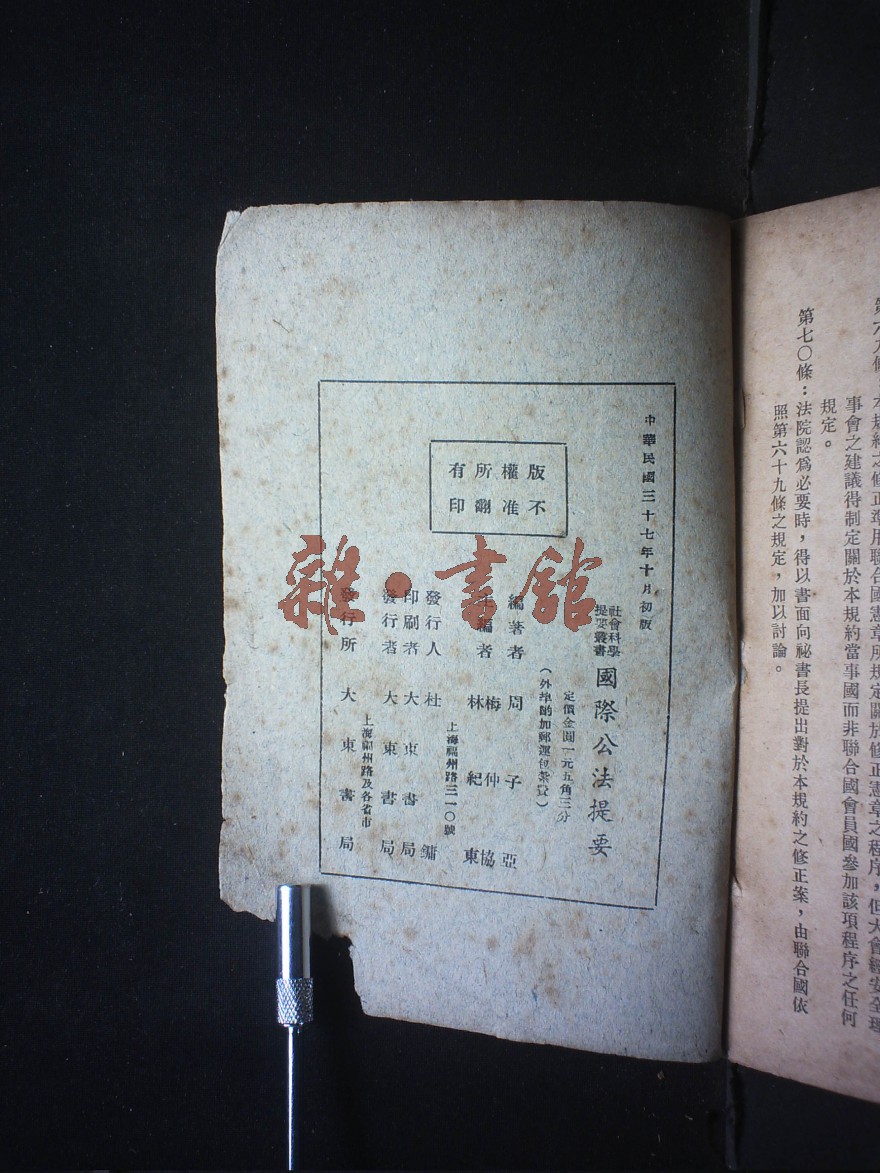 第六九條 本規約之修正準用聯合國憲章所規定關於修正憲章之程序，但大會經安全理
事會之建議得制定關於本規約當事國而非聯合國會員國參加該項程序之任何
規定。
第七〇條：法院認爲必要時，得以書面向祕書長提出對於本規約之修正案，由聯合國依
照第六十九條之規定，加以討論。
中華民國三十七年十月初版
社會科學
提要叢書
國際公法提要
定價金圓一元五角三分
（外埠酌加郵運包裝費）
版權所有
不准翻印
編著者 周子亞
編者 梅仲協
林紀東
上海福州路三一〇號
發行人 杜鏞
印刷者 大東書局
發行者 大東書局
上海福州路及各省市
發行所 大東書局
雜·書館